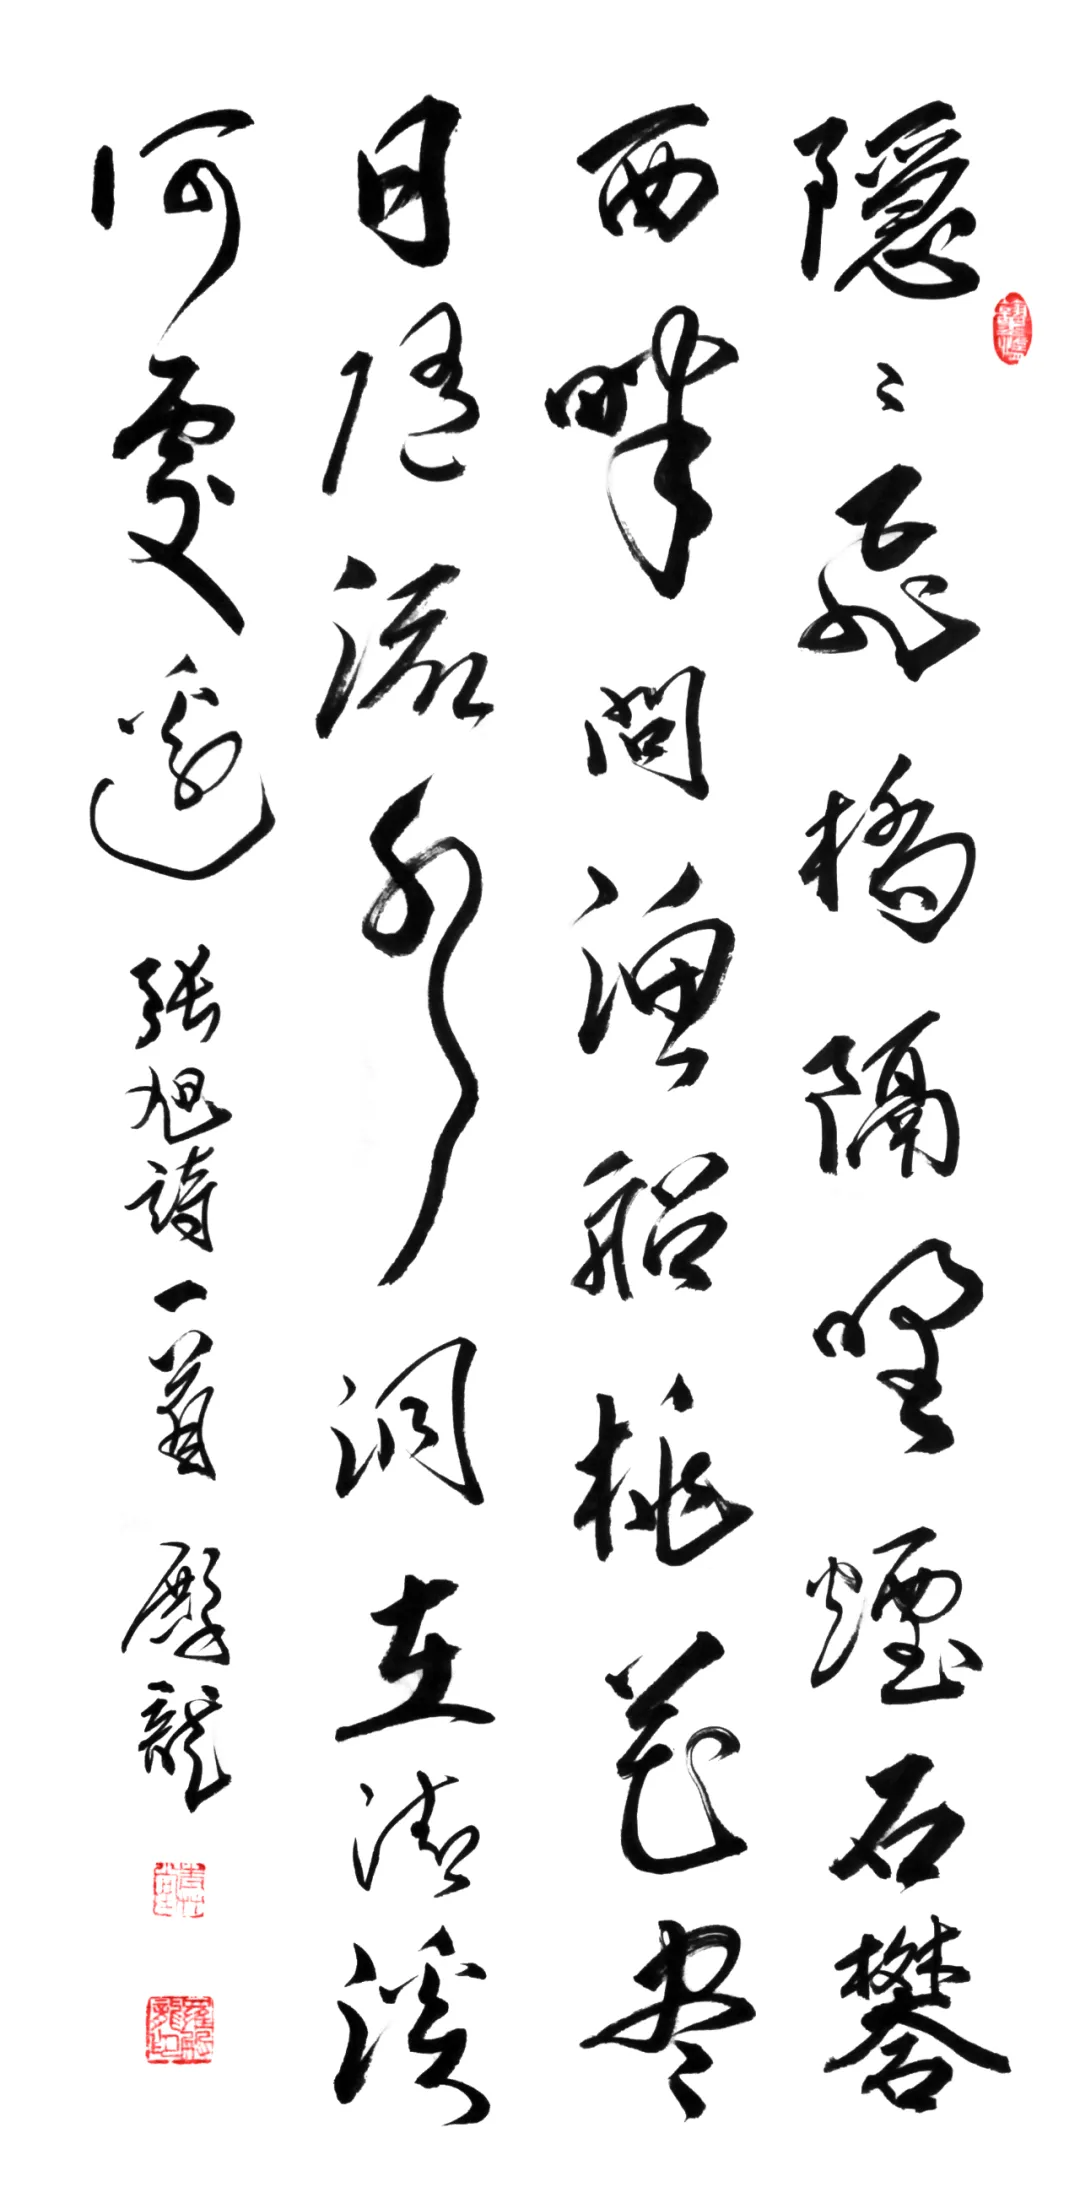 隱〻飛橋隔野煙石礬
西畔問漁船桃花尽
日隨流水洞在清溪
何處邊 張旭詩一首 龍